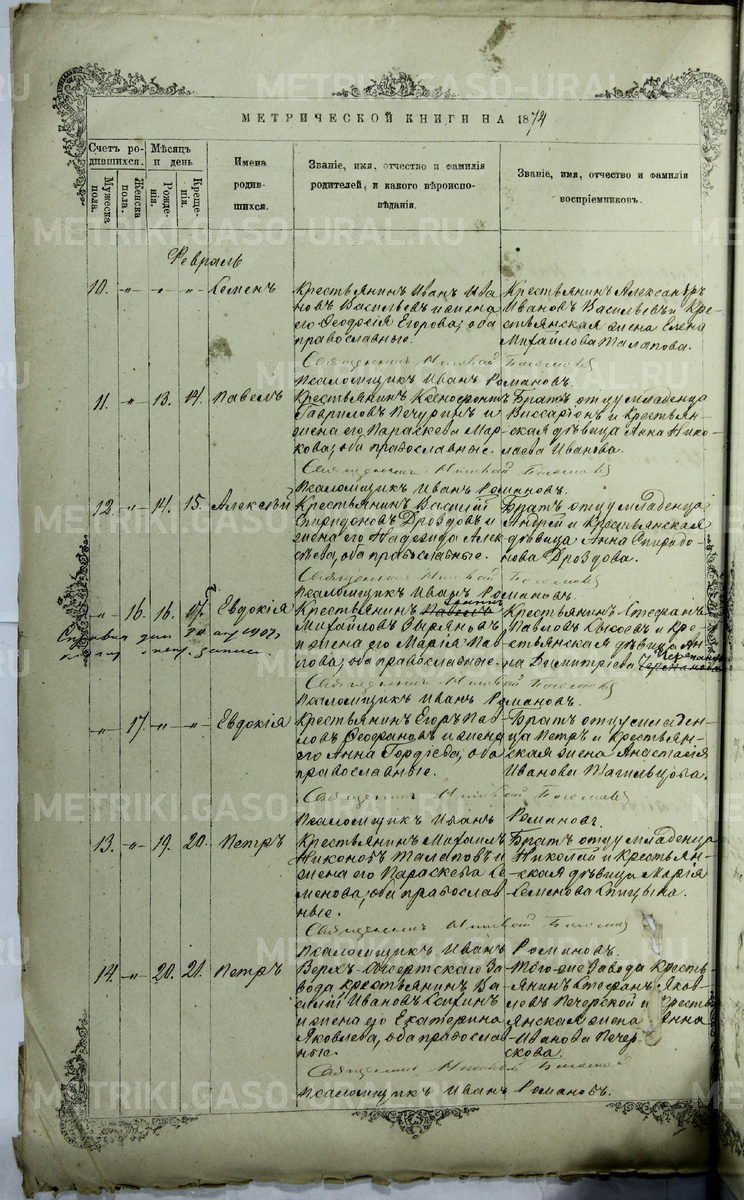 МЕТРИЧЕСКОЙ КНИГИ НА 1874
Счетъ ро-
дившихся.
Мѣсяцъ
и день
Мужеска
пола.
Женска
пола.
Рожде-
нія.
Креще-
нія.
Имена
родив-
шихся.
Званіе, имя, отчество и фамилія
родителей, и какого вѣроиспо-
вѣданія.
Званіе, имя, отчество и фамилія
воспріемниковъ.
Февраль
10. „ „ „ Семенъ
Крестьянинъ Иванъ Ива
новъ Васильевъ и жена
его Ѳеодосія Егорова, оба
православные.
Крестьянинъ Александръ
Ивановъ Васильевъ и Кре-
стьянская жена Елена
Михайлова Талапова.
Священникъ Николай
Псаломщикъ Иванъ Романовъ.
11. „ 13. 14. Павелъ
Крестьянинъ Ксенофонтъ
Гавриловъ Печуринъ и
жена его Параскева Мар-
кова, оба православные.
Братъ отцу младенца
Виссаріонъ и крестьян-
ская дѣвица Анна Нико-
лаева Иванова.
Священникъ Николай
Псаломщикъ Иванъ Романовъ.
12. „ 14. 15. Алексѣй
Крестьянинъ Василій
Спиридоновъ Дроздовъ и
жена его Надежда Алек-
сѣева, оба православные.
Братъ отцу младенца
Андрей и крестьянская
дѣвица Анна Спиридо-
нова Дроздова.
Священникъ Николай
Псаломщикъ Иванъ Романовъ.
„ 16. 16. 17. Евдокія
Крестьянинъ
Михайловъ и жена его Марія Пав
лова, оба православные.
Крестьянинъ Стефанъ
Павловъ и Кре-
стьянская дѣвица Ан
на Димитріева
1907
Священникъ Николай
Псаломщикъ Иванъ Романовъ.
„ 17. „ „ Евдокія
Крестьянинъ Егоръ Пав-
ловъ Ѳеофановъ и жена
его Анна Гордѣева, оба
православные.
Братъ отцу младен-
ца Петръ и Крестьян-
ская жена Анастасія
Иванова Тагильцова.
Священникъ Николай
Псаломщикъ Иванъ Романовъ.
13. „ 19. 20. Петръ
Крестьянинъ Михаилъ
Никоновъ Талаповъ и
жена его Параскева Се
менова, оба православ-
ные.
Братъ отцу младенца
Николай и Крестьян-
ская дѣвица Марія
Семенова Спицына.
Священникъ Николай
Псаломщикъ Иванъ Романовъ.
14. „ 20. 21. Петръ
Верхъ-Исетскаго За
вода крестьянинъ Ва
силій Ивановъ
и жена его Екатерина
Яковлева, оба православ
ные.
Того-же Завода Кресть-
янинъ Стефанъ Яков-
левъ Печерской и Кресть
янская жена Анна
Иванова Печер-
скова.
Священникъ Николай
Псаломщикъ Иванъ Романовъ.
METRIKI.GASO-URAL.RU